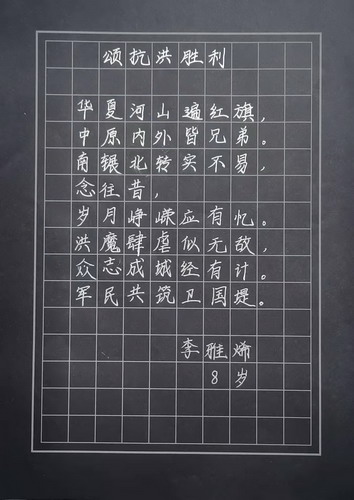 颂抗洪胜利
华夏河山遍红旗，
中原内外皆兄弟。
南辗北转实不易，
念往昔，
岁月峥嵘应有忆。
洪魔肆虐似无敌，
众志成城经有计。
军民共筑卫国堤。
李雅烯
8岁